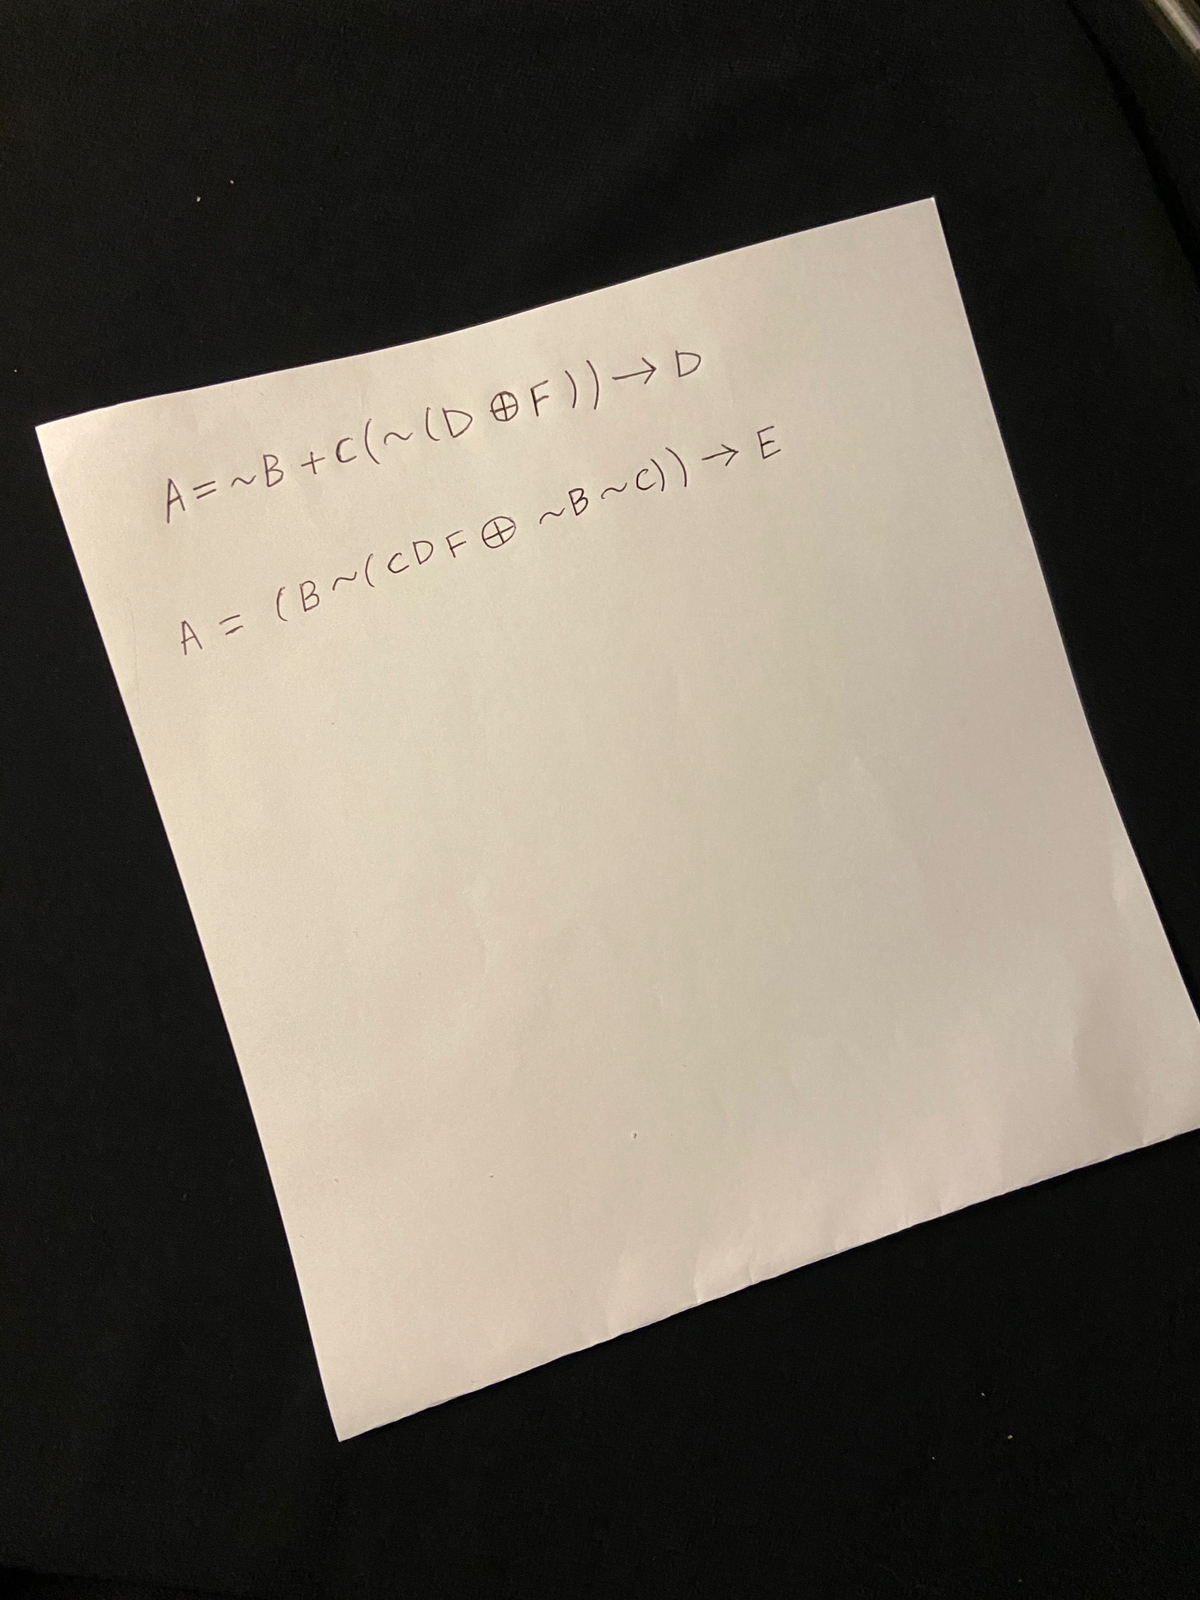 A = ~B + C(~(D ⊕ F)) → D
A = (B ~(CDF ⊕ ~B ~C)) → E